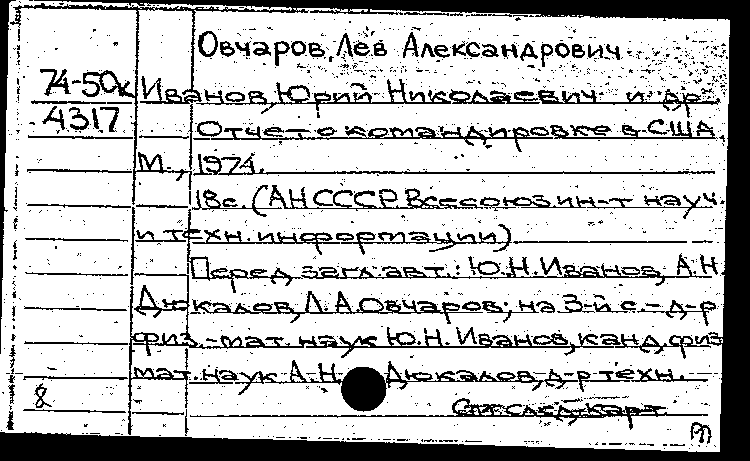 Овчаров, Лев Александрович
74-50к Иванов, Юрий Николаевич и др.
4317 Отчет о командировке в США.
М., 1974.
18с. (АН СССР. Всесоюз. ин-т науч.
и техн. информации)
Перед загл. авт.: Ю.Н. Иванов, А.Н.
Дюкалов, Л.А. Овчаров; на 3-й с. - д-р
физ.-мат. наук Ю.Н. Иванов, канд. физ.
мат. наук А.Н. Дюкалов, д-р техн.
8 См. след. карт.